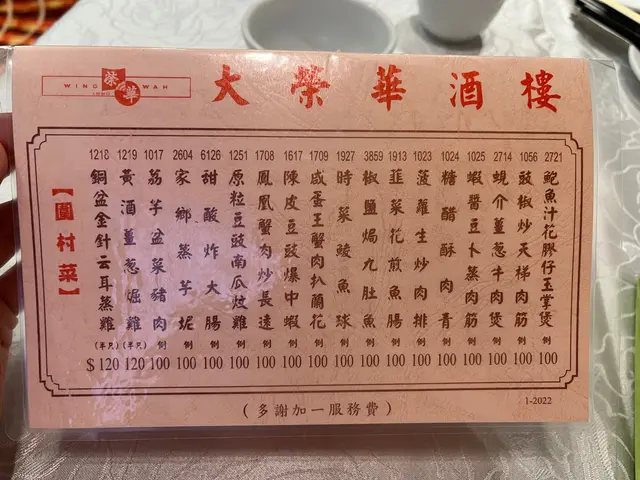 WING 榮華 WAH
大榮華酒樓
【圍村菜】
1218 銅盆金針云耳蒸雞 (半只) $120
1219 黃酒薑蔥焗雞 (半只) 120
1017 荔芋盆菜豬肉 例 100
2604 家鄉蒸芋坭 例 100
6126 甜酸炸大腸 例 100
1251 原粒豆豉南瓜炆雞 例 100
1708 鳳凰蟹肉炒長遠 例 100
1617 陳皮豆豉爆中蝦 例 100
1709 咸蛋王蟹肉扒蘭花 例 100
1927 時菜崚魚球 例 100
3859 椒鹽焗九肚魚 例 100
1913 韮菜花煎魚腸 例 100
1023 菠蘿生炒肉排 例 100
1024 糖醋酥肉青 例 100
1025 蝦醬豆卜蒸肉筋 例 100
2714 蜆介薑蔥牛肉煲 例 100
1056 豉椒炒天梯肉筋 例 100
2721 鮑魚汁花膠仔玉掌煲 例 100
(多謝加一服務費)
1-2022